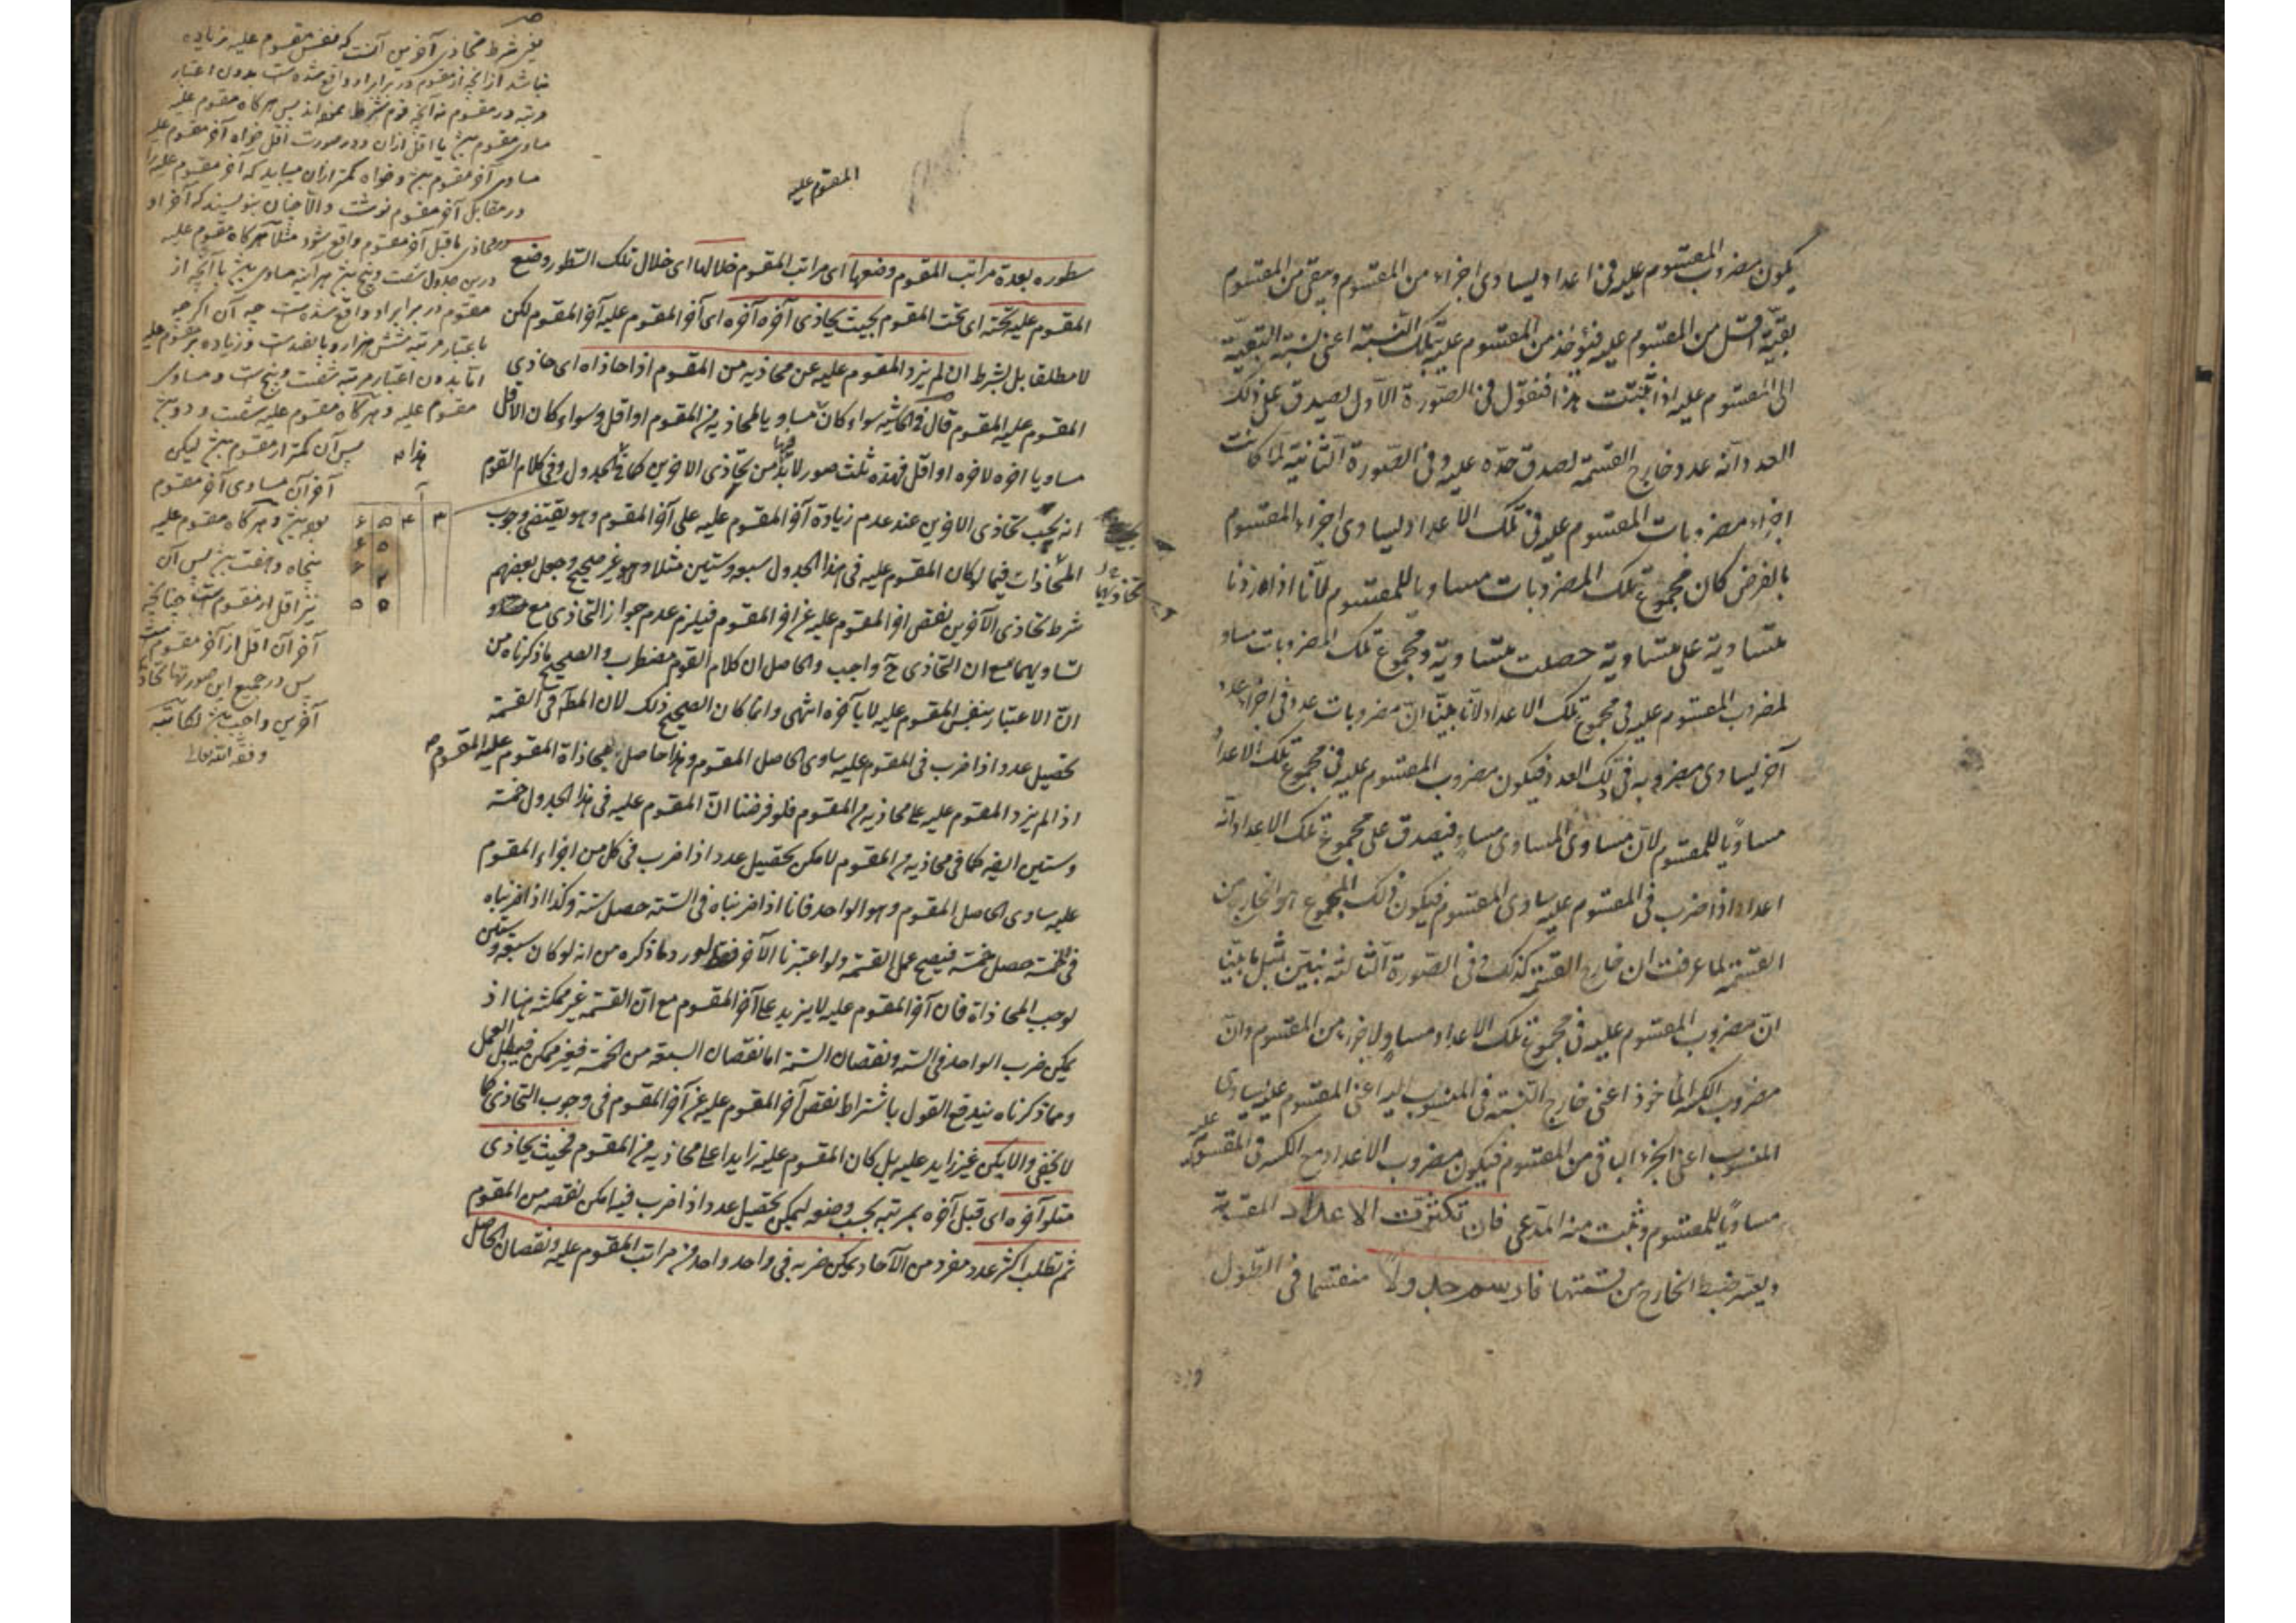 يكون مضروب المقسوم عليه في اعداد ليساوى اجزاء من المقسوم ويبقى من المقسوم
بقية اقل من المقسوم عليه فيؤخذ من المقسوم عليه بتلك النسبة اعنى نسبة البقية
الى المقسوم عليه اذا ثبتت هذا فنقول في الصورة الاول يصدق على ذلك
العدد انه عدد خارج القسمة لصدق حده عليه وفي الصورة الثانية لما كانت
اجزاء مضروبات المقسوم عليه في تلك الاعداد ليساوى اجزاء المقسوم
بالفرض كان مجموع تلك المضروبات مساويا للمقسوم لانا اذا زدنا
متساوية على متساوية حصلت متساوية ومجموع تلك المضروبات مساو
لمضروب المقسوم عليه في مجموع تلك الاعداد لانا بينا ان مضروبات عدد في اجزاء عدد
آخر ليساوى مضروبه في ذلك العدد فيكون مضروب المقسوم عليه في مجموع تلك الاعداد
مساويا للمقسوم لان مساوى المساوى مساو فيصدق على مجموع تلك الاعداد انه
اعداد اذا ضرب في المقسوم عليه ساوى المقسوم فيكون ذلك المجموع هو الخارج من
القسمة لما عرفت ان خارج القسمة كذلك وفى الصورة الثالثة نبين بمثل ما بينا
ان مضروب المقسوم عليه في مجموع تلك الاعداد مساو لاجزاء من المقسوم وان
مضروب الكسر المأخوذ اعنى خارج النسبة في المنسوب اليه اعنى المقسوم عليه يساوى
المنسوب اعنى الجزء الباقى من المقسوم فيكون مضروب الاعداد مع الكسر في المقسوم عليه
مساويا للمقسوم وثبت منه المدعى فان تكثرت الاعداد المقسومة
ويعسر ضبط الخارج من قسمتها فارسم جدولا منقسما في الطول
المقسوم عليه
سطوره بعدة مراتب المقسوم وضعها اى مراتب المقسوم خلالها اى خلال تلك السطور وضع
المقسوم عليه تحته اى تحت المقسوم بحيث يحاذى آخره آخره اى آخر المقسوم عليه آخر المقسوم لكن
لا مطلقا بل بشرط ان لم يزد المقسوم عليه عن محاذيه من المقسوم اذا حاذاه اى حاذى
المقسوم عليه المقسوم قال في الحاشية سواء كان مساويا لمحاذيه من المقسوم او اقل وسواء كان الاقل
مساويا اخره لاخره او اقل فهذه ثلث صور لا بد فيها من تحاذى الاخرين كما في الجدول وفى كلام القوم
انه يجب تحاذى الاخرين عند عدم زيادة آخر المقسوم عليه على آخر المقسوم وهو يقتضى وجوب
المحاذات فيما لو كان المقسوم عليه في هذا الجدول سبعه وستين مثلا وهو غير صحيح وجعل بعضهم
شرط تحاذى الآخرين نقص اخر المقسوم عليه عن اخر المقسوم فيلزم عدم جواز التحاذى مع
تساويهما مع ان التحاذى ح واجب والحاصل ان كلام القوم مضطرب والصحيح ما ذكرناه من
ان الاعتبار بنفس المقسوم عليه لا بآخره انتهى وانما كان الصحيح ذلك لان المط في القسمة
تحصيل عدد اذا ضرب في المقسوم عليه ساوى الحاصل المقسوم وهذا حاصل بمحاذاة المقسوم عليه المقسوم
اذا لم يزد المقسوم عليه على محاذيه من المقسوم فلو فرضنا ان المقسوم عليه في هذا الجدول خمسة
وستين الفه كما في محاذيه من المقسوم لامكن تحصيل عدد اذا ضرب في كل من اجزاء المقسوم
عليه ساوى الحاصل المقسوم وهو الواحد فانا اذا ضربناه في الستة حصل ستة وكذا اذا ضربناه
في خمسة حصل خمسة فيصح عمل القسمة ولو اعتبرنا الآخر فقط لورد ما ذكره من انه لو كان سبعه وستين
لوجب المحاذاة فان آخر المقسوم عليه لا يزيد على آخر المقسوم مع ان القسمة غير ممكنة هنا اذ
يمكن ضرب الواحد في الستة ونقصان الستة اما نقصان السبعة من الخمسة فغير ممكن فيبطل العمل
ومما ذكرناه يندفع القول باشتراط نقص آخر المقسوم عليه عن آخر المقسوم في وجوب التحاذى كما
لا يخفى والا يكن غير زايد عليه بل كان المقسوم عليه زايدا على محاذيه من المقسوم فبحيث يحاذى
متلو آخره اى قبل آخره بمرتبه بحسب وضعه ليمكن تحصيل عدد اذا ضرب فيه امكن نقصه من المقسوم
ثم تطلب اكثر عدد مفرد من الآحاد يمكن ضربه في واحد واحد من مراتب المقسوم عليه ونقصان الحاصل
يعنى شرط تحاذى آخرين آنست كه نفس مقسوم عليه زياده
نباشد از آنچه از مقسوم در برابر او واقع شده است بدون اعتبار
مرتبه در مقسوم نه آنچه قوم شرط نموده اند پس هركاه مقسوم عليه
مساوى مقسوم باشد يا اقل از ان ودر صورت اقل خواه آخر مقسوم عليه
مساوى آخر مقسوم باشد وخواه كمتر از ان ميبايد كه آخر مقسوم عليه را
در مقابل آخر مقسوم نوشت والا چنان بنويسند كه آخر او
در محاذى ما قبل آخر مقسوم واقع شود مثلا هركاه مقسوم عليه
درين جدول شصت وپنج باشد هر اينه مساوى باشد با آنچه از
مقسوم در برابر او واقع شده است چه آن اكرچه
باعتبار مرتبه شش هزار وپانصد است وزياده بر مقسوم عليه
اما بدون اعتبار مرتبه شصت وپنج است ومساوى
مقسوم عليه وهركاه مقسوم عليه شصت ودو باشد
پس آن كمتر از مقسوم باشد ليكن
آخر آن مساوى آخر مقسوم
بود وهركاه مقسوم عليه
پنجاه وهفت باشد پس آن
نيز اقل از مقسوم است چنانچه
آخر آن اقل از آخر مقسوم است
پس در جميع اين صورتها تحاذى
آخرين واجب باشد لكاتبه
وفقه الله تعالى
۶ ۵ ۴ ۳
۶ ۵
۶ ۲
۵ ۵